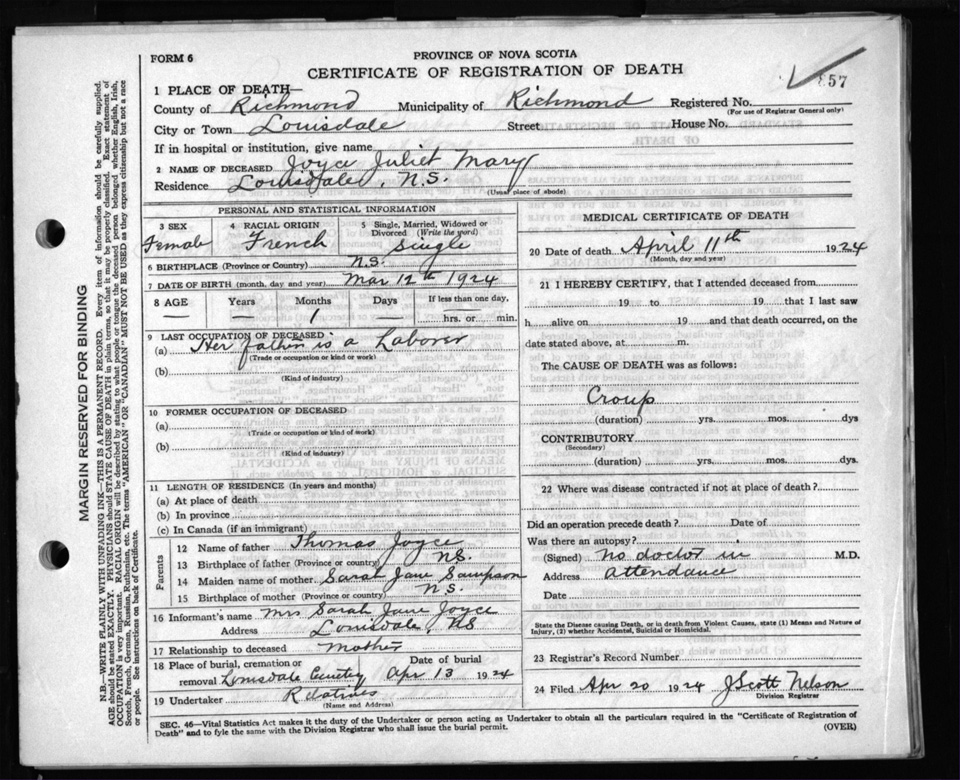 FORM 6
PROVINCE OF NOVA SCOTIA
CERTIFICATE OF REGISTRATION OF DEATH
57
1 PLACE OF DEATH—
County of Richmond Municipality of Richmond Registered No.
(For use of Registrar General only)
City or Town Louisdale Street House No.
If in hospital or institution, give name
2 NAME OF DECEASED Joyce Juliet Mary
Residence Louisdale, N.S.
(Usual place of abode)
PERSONAL AND STATISTICAL INFORMATION
3 SEX 4 RACIAL ORIGIN 5 Single, Married, Widowed or Divorced (Write the word)
Female French Single
6 BIRTHPLACE (Province or Country) N.S.
7 DATE OF BIRTH (month, day and year) Mar 12th 1924
8 AGE Years Months Days If less than one day,
— — 1 — hrs. or min.
9 LAST OCCUPATION OF DECEASED
(a) Her father is a Laborer
(Trade or occupation or kind or work)
(b)
(Kind of industry)
10 FORMER OCCUPATION OF DECEASED
(a)
(Trade or occupation or kind or work)
(b)
(Kind of industry)
11 LENGTH OF RESIDENCE (In years and months)
(a) At place of death
(b) In province
(c) In Canada (if an immigrant)
Parents
12 Name of father Thomas Joyce
13 Birthplace of father (Province or country) N.S.
14 Maiden name of mother Sarah Jane Sampson
15 Birthplace of mother (Province or country) N.S.
16 Informant's name Mrs Sarah Jane Joyce
Address Louisdale, N.S
17 Relationship to deceased mother
18 Place of burial, cremation or removal Date of burial
Louisdale Cemetry Apr 13 1924
19 Undertaker Relatives
(Name and Address)
MEDICAL CERTIFICATE OF DEATH
20 Date of death April 11th 1924
(Month, day and year)
21 I HEREBY CERTIFY, that I attended deceased from
19 to 19 that I last saw
h alive on 19 and that death occurred, on
the date stated above, at m.
The CAUSE OF DEATH was as follows:
Croup
(duration) yrs. mos. dys
CONTRIBUTORY
(Secondary)
(duration) yrs. mos. dys.
22 Where was disease contracted if not at place of death?
Did an operation precede death? Date of
Was there an autopsy?
(Signed) no doctor in M.D.
Address attendance
Date
State the Disease causing Death, or in death from Violent Causes, state (1) Means and Nature of
Injury, (2) whether Accidental, Suicidal or Homicidal.
23 Registrar's Record Number
24 Filed Apr 20 1924 J Scott Nelson
Division Registrar
SEC. 46—Vital Statistics Act makes it the duty of the Undertaker or person acting as Undertaker to obtain all the particulars required in the "Certificate of Registration of
Death" and to fyle the same with the Division Registrar who shall issue the burial permit.
(OVER)
MARGIN RESERVED FOR BINDING
N.B.—WRITE PLAINLY WITH UNFADING INK—THIS IS A PERMANENT RECORD. Every item of information should be carefully supplied.
AGE should be stated EXACTLY. PHYSICIANS should STATE CAUSE OF DEATH in plain terms, so that it may be properly classified. Exact statement of
OCCUPATION is very important. RACIAL ORIGIN will be described by stating to what people or tongue the deceased person belonged whether English, Irish,
Scotch, French, German, Russian, Ruthenian, etc. The terms "AMERICAN" OR "CANADIAN" MUST NOT BE USED as they express citizenship but not a race
or people. See instructions on back of Certificate.